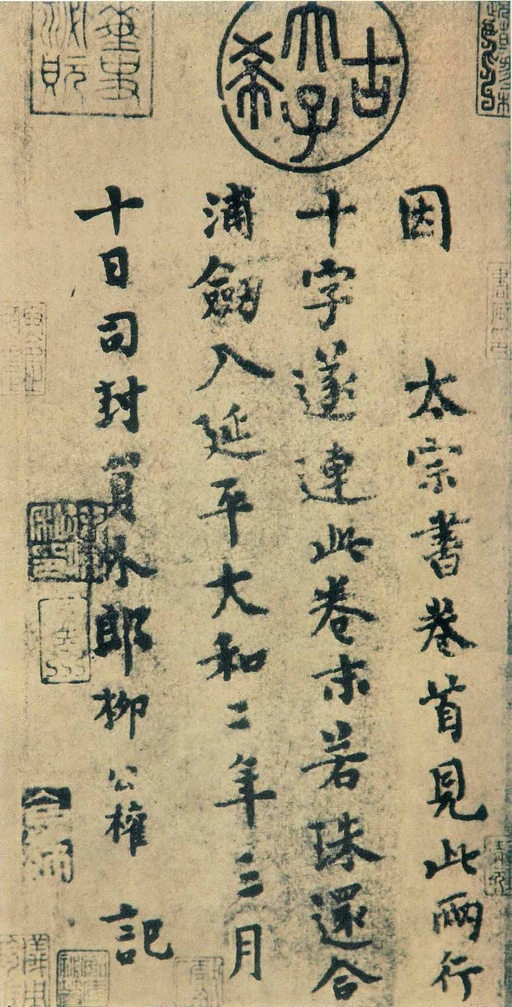 因 太宗書卷首見此兩行
十字遂連此卷末若珠還合
浦劒入延平大和二年三月
十日司封員外郎柳公權 記
古
太子
希